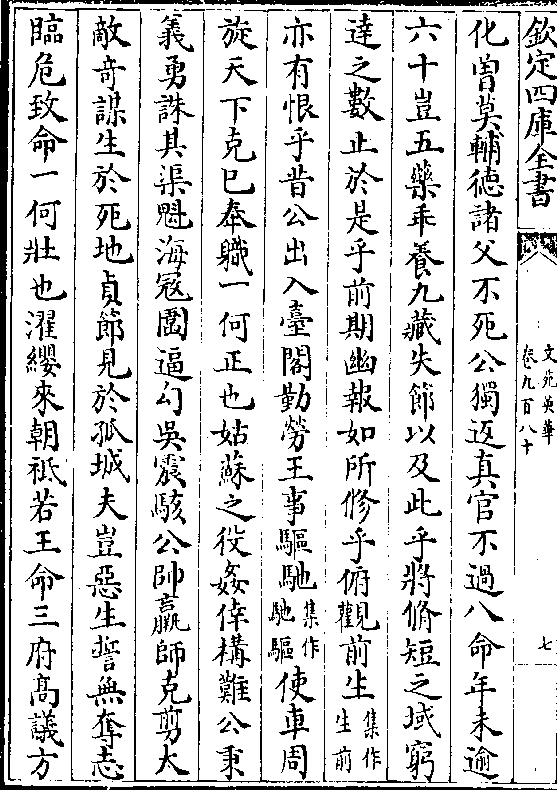 欽定四庫全書
文苑英華
卷九百八十
七
化曽莫輔徳諸父不死公獨返真官不過八命年未逾
六十豈五藥乖養九藏失節以及此乎將脩短之域窮
逹之數止於是乎前期幽報如所修乎俯觀前生集作生前
亦有恨乎昔公出入臺閣勤勞王事驅馳集作馳驅使車周
旋天下克已奉職一何正也姑蘇之役姦倖構難公秉
義勇誅其渠魁海冦圍逼勾吳震駭公帥羸師克剪大
敵竒謀生於死地貞節見於孤城夫豈惡生誓無奪志
臨危致命一何壯也濯纓來朝祗若王命三府髙議方